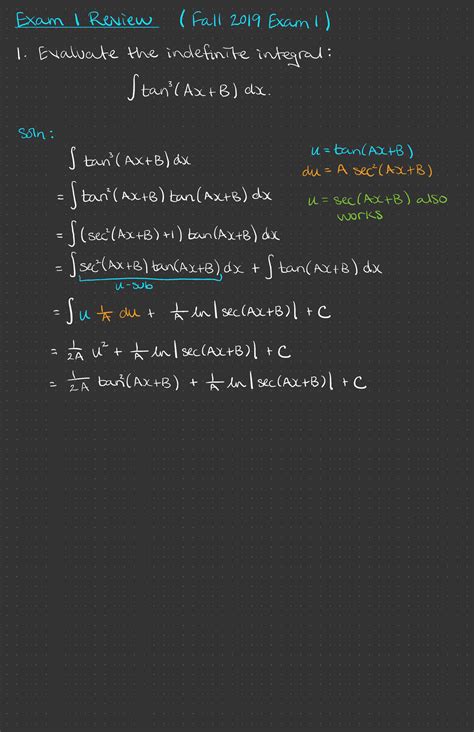 Exam 1 Review (Fall 2019 Exam 1)
1. Evaluate the indefinite integral:
∫tan³(Ax+B) dx.
Soln:
∫ tan³(Ax+B) dx
u = tan(Ax+B)
du = A sec²(Ax+B)
= ∫ tan²(Ax+B) tan(Ax+B) dx
u = sec(Ax+B) also
works
= ∫ (sec²(Ax+B)+1) tan(Ax+B) dx
= ∫ sec²(Ax+B) tan(Ax+B) dx + ∫ tan(Ax+B) dx
u-sub
= ∫ u 1/A du + 1/A ln|sec(Ax+B)| + C
= 1/2A u² + 1/A ln|sec(Ax+B)| + C
= 1/2A tan²(Ax+B) + 1/A ln|sec(Ax+B)| + C